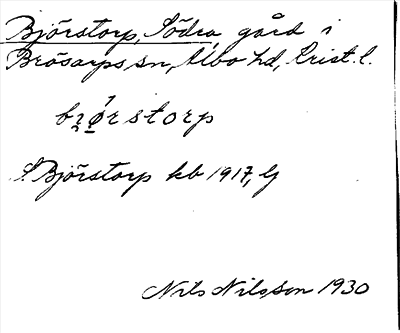 Björstorp, Södra, gård i
Brösarps sn, Albo hd, Krist. l.
bjø̄́rstorp
S. Björstorp kb 1917, Lj
Nils Nilsson 1930